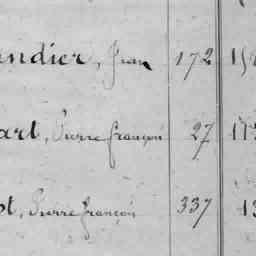 ndier, Jean 172
art, Pierre françois 27
ot, Pierre françois 337